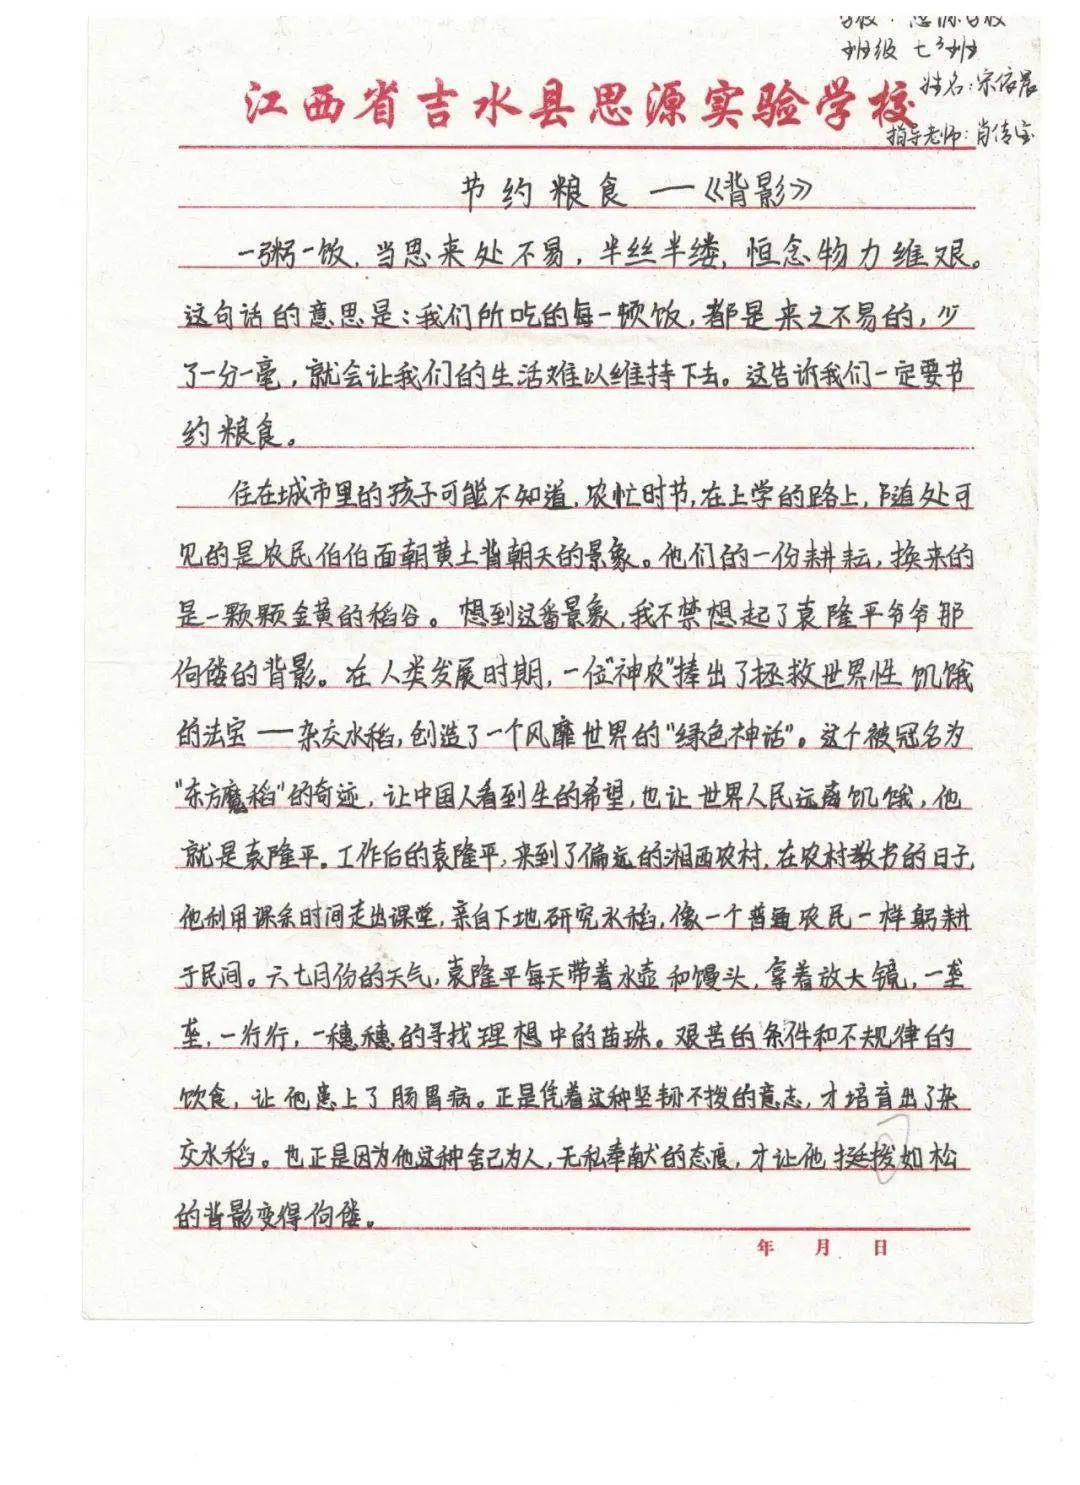 学校：思源学校
班级 七3班
姓名：宋依晨
江西省吉水县思源实验学校
指导老师：肖传宝
节约粮食——《背影》
一粥一饭，当思来处不易，半丝半缕，恒念物力维艰。
这句话的意思是：我们所吃的每一顿饭，都是来之不易的，少
了一分一毫，就会让我们的生活难以维持下去。这告诉我们一定要节
约粮食。
住在城市里的孩子可能不知道，农忙时节，在上学的路上，随处可
见的是农民伯伯面朝黄土背朝天的景象。他们的一份耕耘，换来的
是一颗颗金黄的稻谷。想到这番景象，我不禁想起了袁隆平爷爷那
佝偻的背影。在人类发展时期，一位“神农”捧出了拯救世界性饥饿
的法宝——杂交水稻，创造了一个风靡世界的“绿色神话”。这个被冠名为
“东方魔稻”的奇迹，让中国人看到生的希望，也让世界人民远离饥饿，他
就是袁隆平。工作后的袁隆平，来到了偏远的湘西农村，在农村教书的日子，
他利用课余时间走出课堂，亲自下地研究水稻，像一个普通农民一样躬耕
于民间。六七月份的天气，袁隆平每天带着水壶和馒头，拿着放大镜，一垄
垄，一行行，一穗穗的寻找理想中的苗珠。艰苦的条件和不规律的
饮食，让他患上了肠胃病。正是凭着这种坚韧不拨的意志，才培育出了杂
交水稻。也正是因为他这种舍己为人，无私奉献的态度，才让他挺拨如松
的背影变得佝偻。
年 月 日